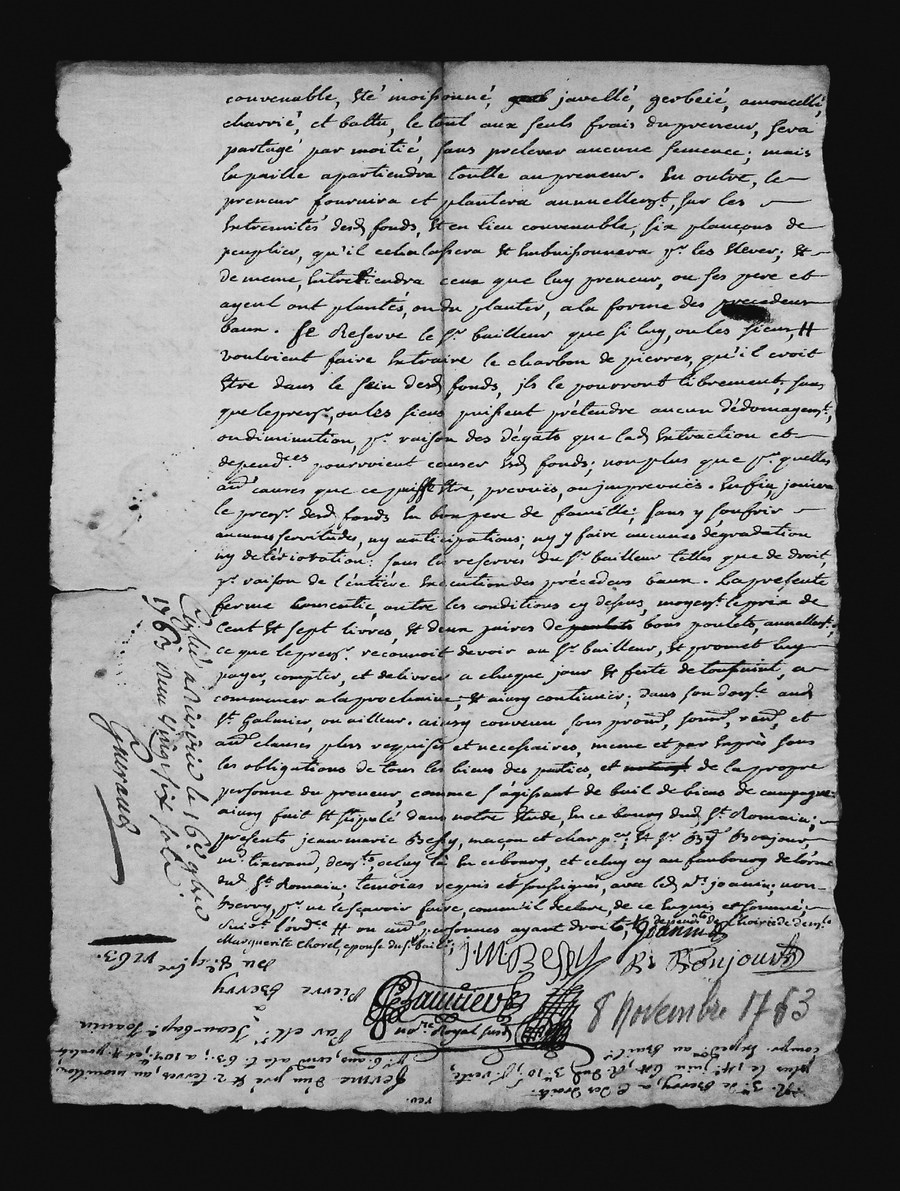 convenable, Eté moissonné, javellé, gerbeié, amoncellé,
charrié, et battu, le tout aux seuls frais du preneur, sera
partagé par moitié, sans prelever aucune semence; mais
la paille apartiendra toutte au preneur. En outre, le
preneur fournira et plantera annuellemt., sur les
Extremités desd. fonds, Et en lieu convenable, six plançons de
peuplier, qu'il echalassera Et Embuissonnera pr. les Elever; Et
de meme, Entretiendra ceux que luy preneur, ou ses pere et
ayeul ont plantés, ou du planter, a la forme des precedens
baux. Se Reserve le Sr. bailleur que si luy, ou les siens, H
vouloient faire Extraire le charbon de pierres, qu'il croit
Etre dans le sein desd. fonds, ils le pourront librement, sans
que le prenr., ou les siens puissent prétendre aucun dédomagemt.,
ou diminution, pr. raison des dégats que lad. Extraction et
dependces. pourroient causer Esd. fonds; non plus que pr. quelles
autres causes que ce puisse Etre, prevuës, ou imprevuës. Enfin, jouira
le prenr. desd. fonds En bon pere de famille, sans y souffrir
aucunes servitudes, ny anticipations; ny y faire aucunes dégradation
ny détérioration: sous la reserve du Sr. bailleur telles que de droit,
pr. raison de l'entiere Execution des précedens baux. La présente
ferme consentie, outre les conditions cy dessus, moyent. le prix de
Cent Et sept livres, Et deux paires de bons poulets, annuellemt.,
ce que le prenr. reconnoit devoir au Sr. bailleur, Et promet luy
payer, compter, et delivrer a chaque jour Et feste de toussaint, a
commencer a la prochaine, Et ainsy continuer; dans son domle. aud.
St. Galmier, ou ailleur. ainsy convenu sous promd., soumd., rend., et
aud. clauses plus requises et necessaires, meme et par Exprès sous
les obligations de tous les biens des parties, et de la propre
personne du preneur, comme s'agissant de bail de biens de campagne
ainsy fait Et stipulé dans notre Etude, En ce bourg dud. St. Romain;
presents jean marie Bessy, maçon et charpr., Et Sr. Bonjour,
md. tisserand, demts., celuy là En ce bourg, et celuy cy au faubourg de
dud. St. Romain; temoins requis et soussignés, avec led. Mr. joanin; non
Berry, pr. ne le sçavoir faire, comm'il declare, de ce Enquis et sommé,
suivt. l'ordce. H ou aud. personnes ayant droits, et dependt. de l'hoirie de demlle.
Marguerite Chorel, epouse du Sr. bailr.
Joanin
J. M. Bessy
B. Bonjour
nore. Royal sussd.
8 Novembre 1763
Cxlé a le 16e. 9bre
1763 Reçu vingt six sols.
Gueraud
Du 8e. 9bre 1763.
Pierre Berry
a
Par Mr. Jean Bapt. Joanin
ferme d'un pré Et 2 terres, au